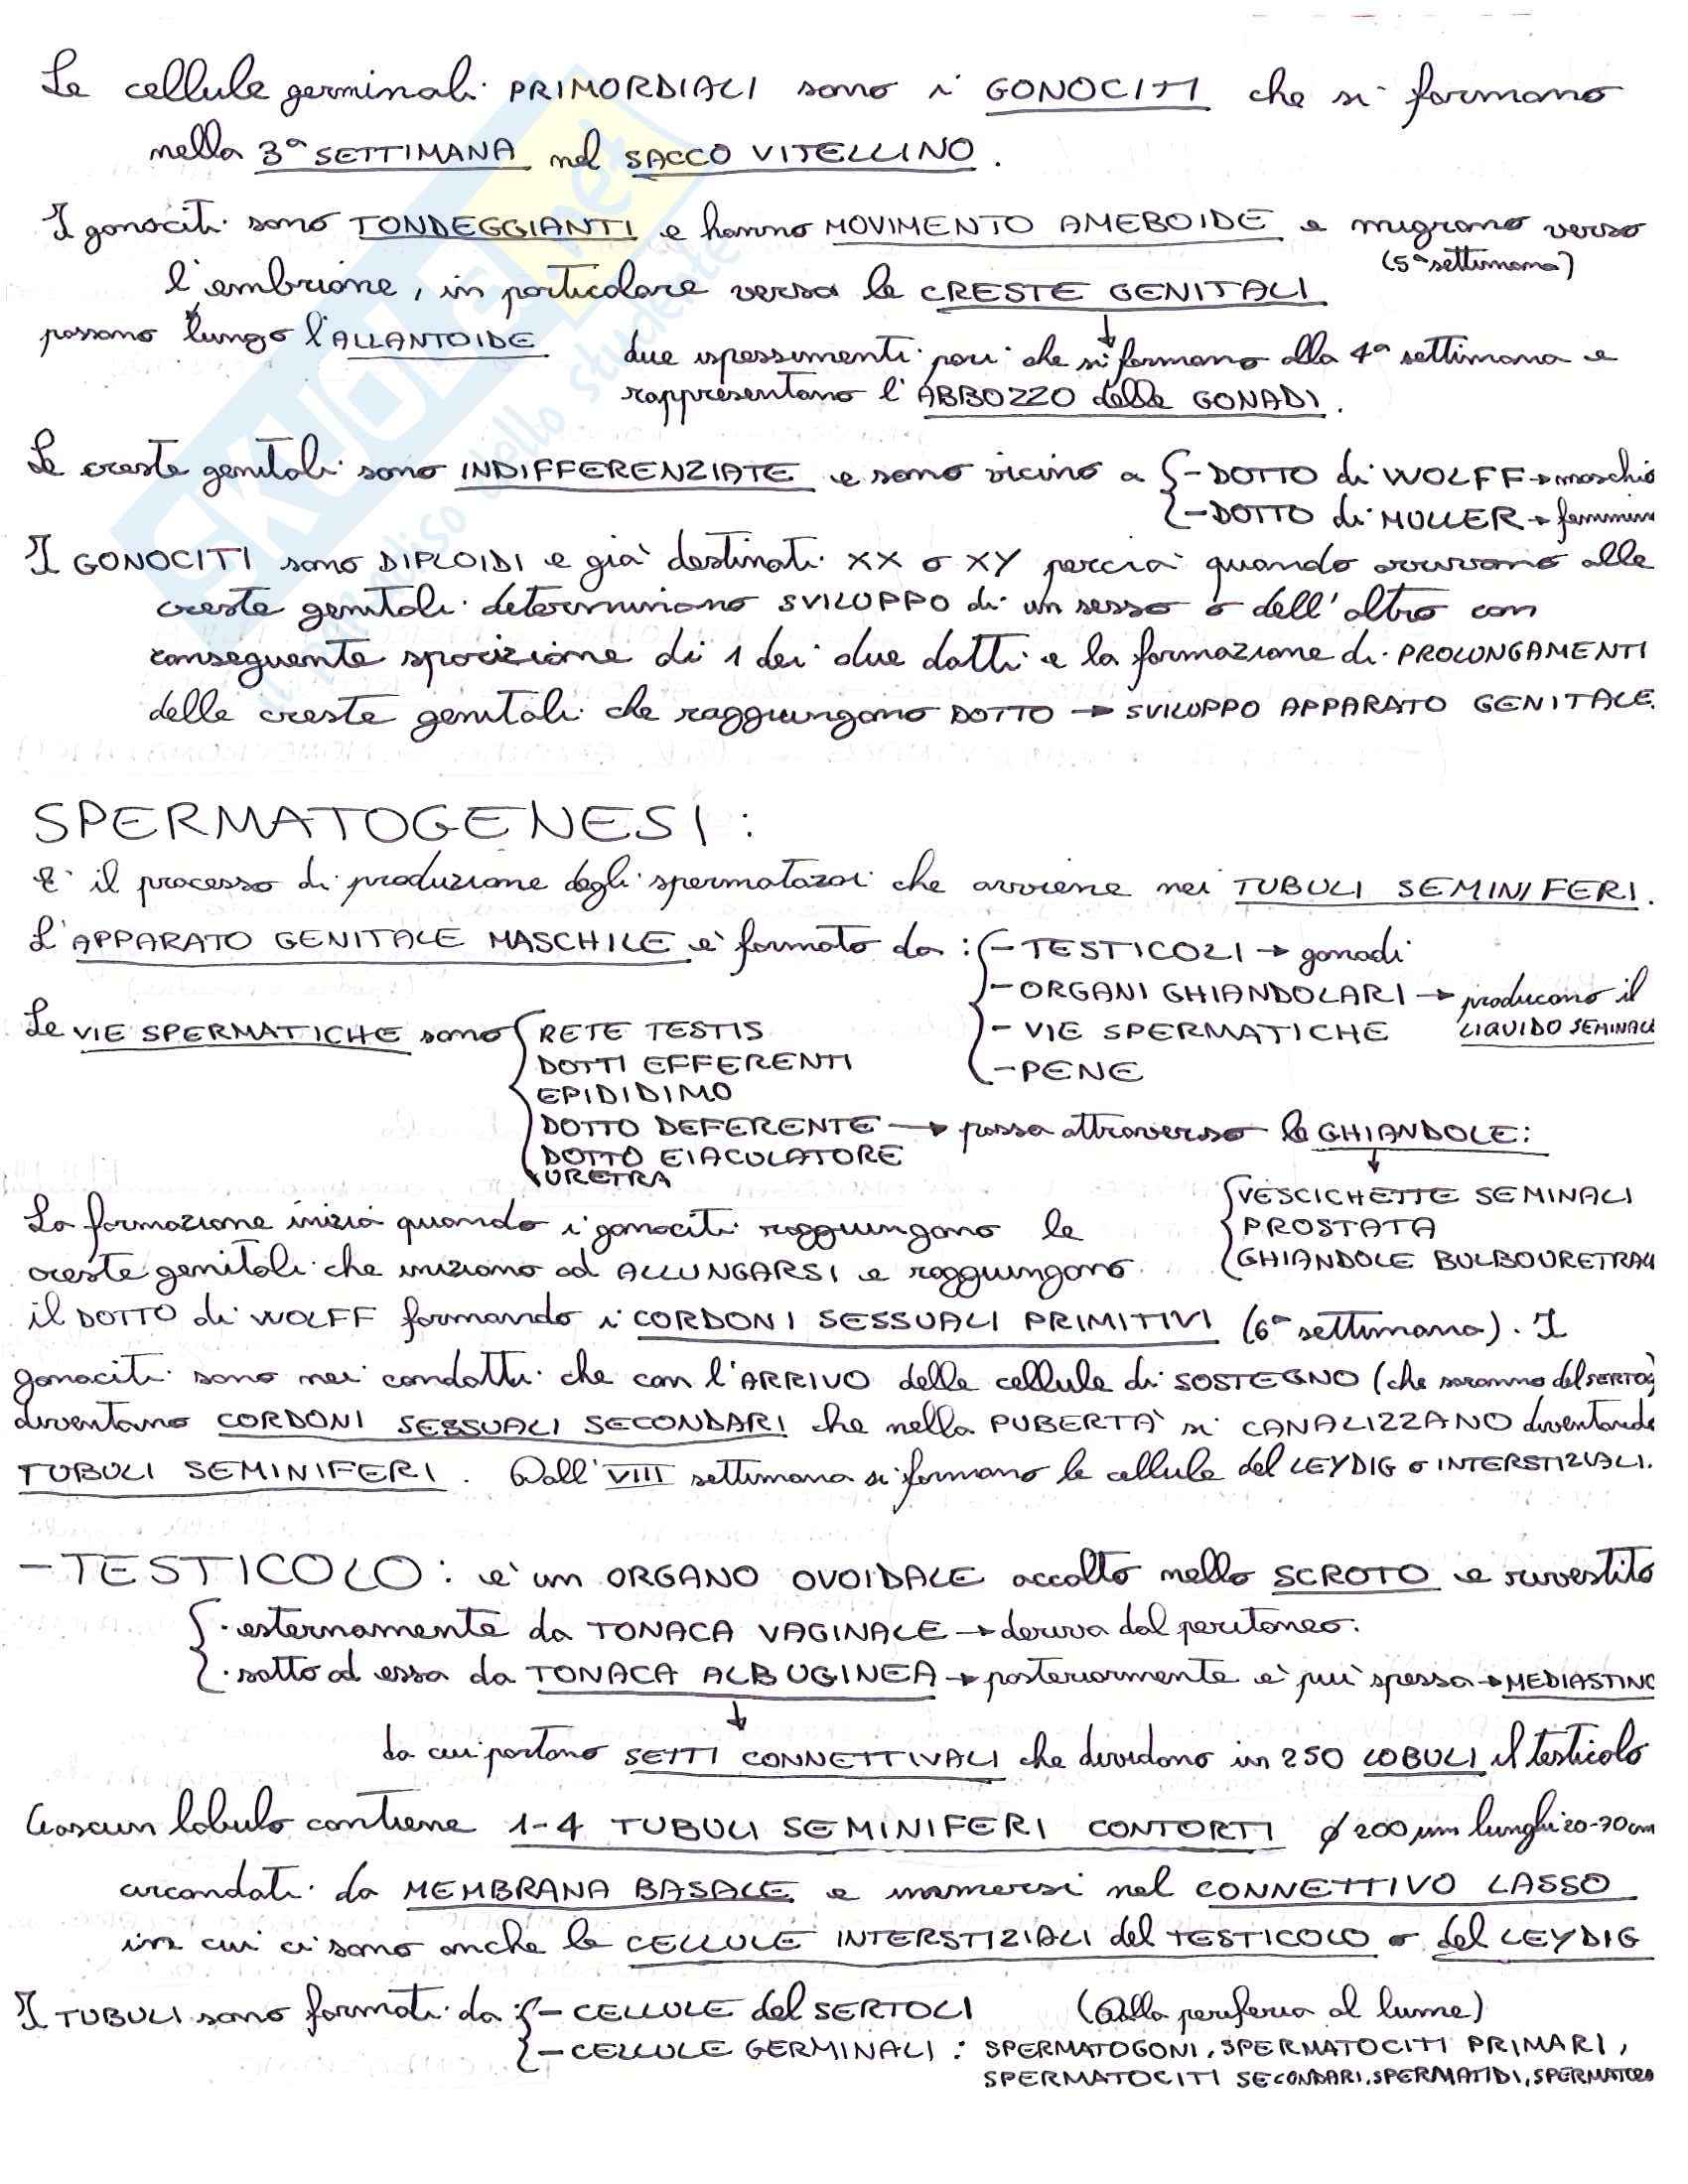 Le cellule germinali PRIMORDIALI sono i GONOCITI che si formano
nella 3ª SETTIMANA nel SACCO VITELLINO.
I gonociti sono TONDEGGIANTI e hanno MOVIMENTO AMEBOIDE e migrano verso
(5ª settimana)
l'embrione, in particolare verso le CRESTE GENITALI
passano lungo l'ALLANTOIDE
due ispessimenti pari che si formano alla 4ª settimana e
rappresentano l'ABBOZZO delle GONADI.
Le creste genitali sono INDIFFERENZIATE e sono vicino a {-DOTTO di WOLFF → maschio
-DOTTO di MULLER → femmin
I GONOCITI sono DIPLOIDI e già destinati XX o XY perciò quando arrivano alle
creste genitali determinano SVILUPPO di un sesso o dell'altro con
conseguente sparizione di 1 dei due dotti e la formazione di PROLUNGAMENTI
delle creste genitali che raggiungono DOTTO → SVILUPPO APPARATO GENITALE.
SPERMATOGENESI:
E' il processo di produzione degli spermatozoi che avviene nei TUBULI SEMINIFERI.
L'APPARATO GENITALE MASCHILE è formato da: {-TESTICOLI → gonadi
-ORGANI GHIANDOLARI → producono il
LIQUIDO SEMINALE
- VIE SPERMATICHE
-PENE
Le VIE SPERMATICHE sono { RETE TESTIS
DOTTI EFFERENTI
EPIDIDIMO
DOTTO DEFERENTE → passa attraverso le GHIANDOLE:
DOTTO EIACULATORE
URETRA
VESCICHETTE SEMINALI
PROSTATA
GHIANDOLE BULBOURETRALI
La formazione inizia quando i gonociti raggiungono le
creste genitali che iniziano ad ALLUNGARSI e raggiungono
il DOTTO di WOLFF formando i CORDONI SESSUALI PRIMITIVI (6ª settimana). I
gonociti sono nei condotti che con l'ARRIVO delle cellule di SOSTEGNO (che saranno del SERTOLI)
diventano CORDONI SESSUALI SECONDARI che nella PUBERTÀ si CANALIZZANO diventando
TUBULI SEMINIFERI. Dall'VIII settimana si formano le cellule del LEYDIG o INTERSTIZIALI.
-TESTICOLO: è un ORGANO OVOIDALE accolto nello SCROTO e rivestito
{· esternamente da TONACA VAGINALE → deriva dal peritoneo.
· sotto ad essa da TONACA ALBUGINEA → posteriormente è più spessa → MEDIASTINO
da cui partono SETTI CONNETTIVALI che dividono in 250 LOBULI il testicolo
Ciascun lobulo contiene 1-4 TUBULI SEMINIFERI CONTORTI ø 200 µm lunghi 20-70 cm
circondati da MEMBRANA BASALE e immersi nel CONNETTIVO LASSO
in cui ci sono anche le CELLULE INTERSTIZIALI del TESTICOLO o del LEYDIG
I TUBULI sono formati da: {- CELLULE del SERTOLI (Dalla periferia al lume)
- CELLULE GERMINALI: SPERMATOGONI, SPERMATOCITI PRIMARI,
SPERMATOCITI SECONDARI, SPERMATIDI, SPERMATOZOI
SKUOLA.net
il paradiso dello studente